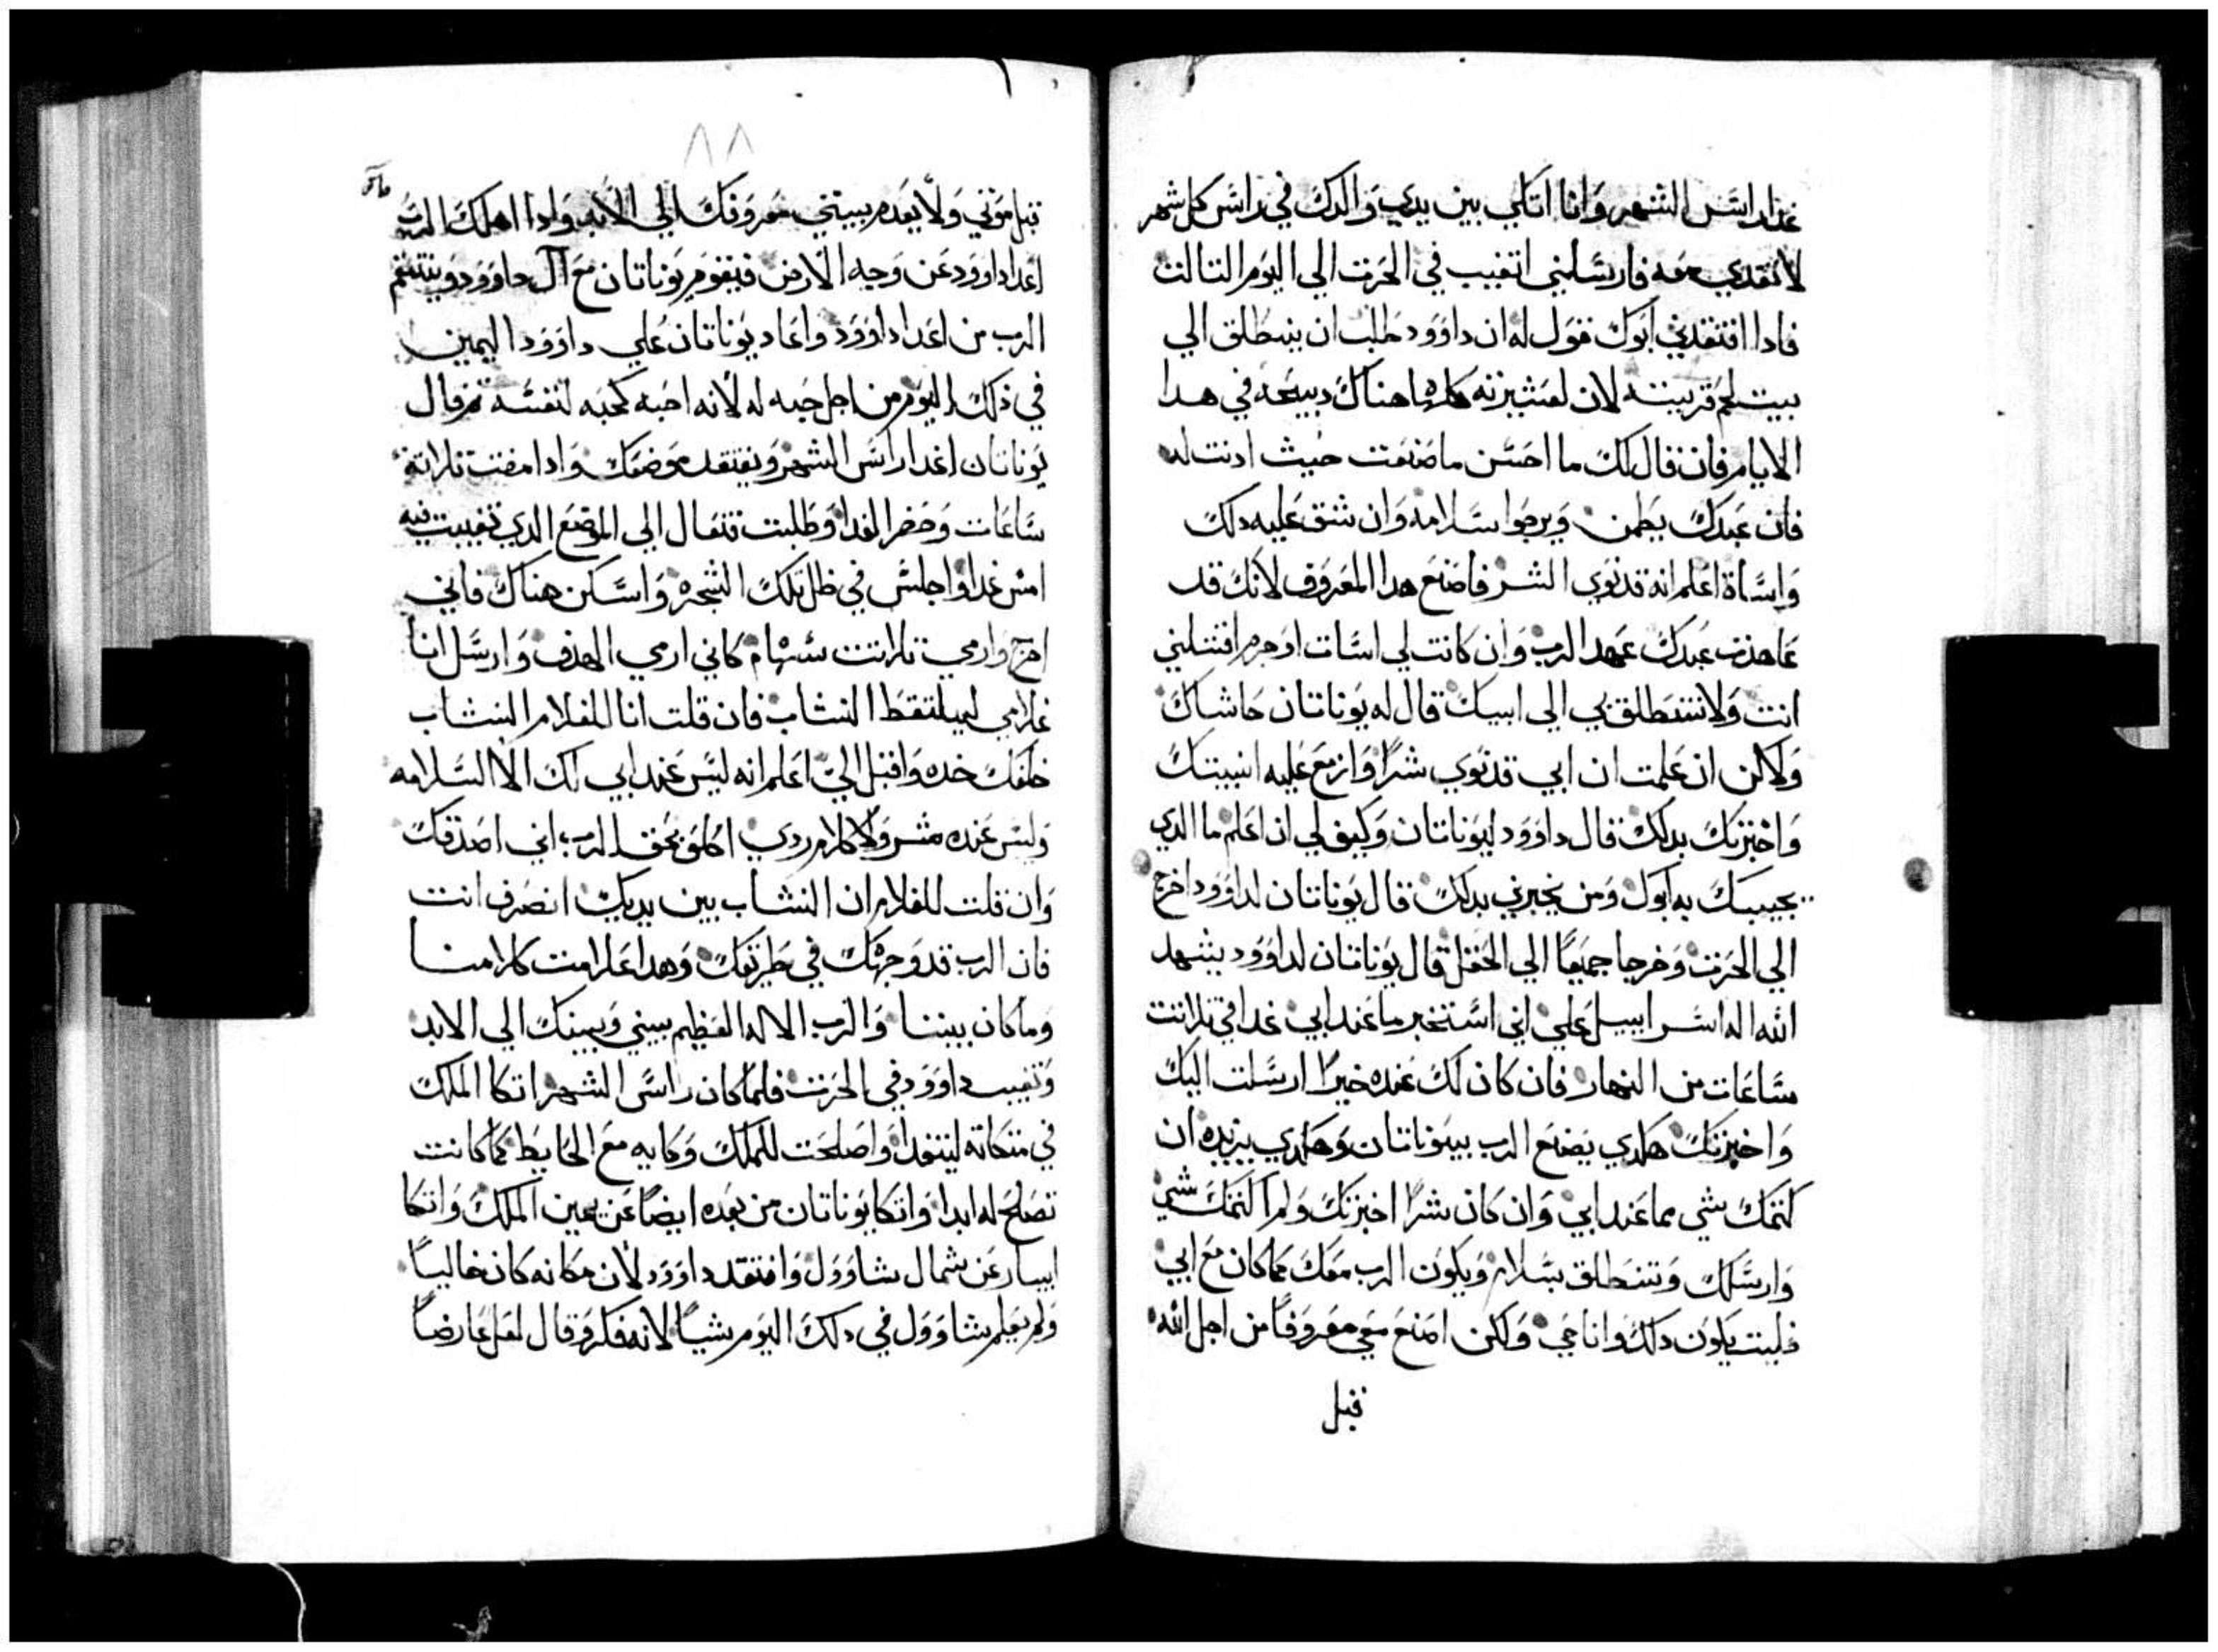 غدا راس الشهر وانا اتكي بين يدي والدك في راس كل شهر
لاتغدي معه فارسلني اتغيب في الحرث الي اليوم التالت
فادا افتقدني ابوك فقول له ان داوود طلب ان ينطلق الي
بيت لحم قريته لان لعشيرته كلها هناك دبيحه في هدا
الايام فان قال لك ما احسن ما صنعت حيث ادنت له
فان عبدك يطمن ويرجوا سلامه وان شق عليه دلك
واساة اعلم انه قد نوي الشر فاصنع هدا المعروف لانك قد
عاهدت عبدك عهد الرب وان كانت لي اسات او جرم اقتلني
انت ولا تنطلق بي الي ابيك قال له يوناتان حاشاك
ولاكن ان علمت ان ابي قد نوي شرا وازمع عليه اتيتك
واخبرتك بدلك قال داوود ليوناتان وكيف لي ان اعلم ما الدي
يجيبك به ابوك ومن يخبرني بدلك قال يوناتان لداوود اخرج
الي الحرث وخرجا جميعا الي الحقل قال يوناتان لداوود يشهد
الله اله اسراييل علي اني استخبر ما عند ابي غدا في تلاتت
ساعات من النهار فان كان لك عنده خيرا ارسلت اليك
واخبرتك هكدي يصنع الرب بيوناتان وهكدي يزيده ان
كتمتك شي مما عند ابي وان كان شرا اخبرتك ولم اكتمك شي
وارسلك وتنطلق بسلام ويكون الرب معك كما كان مع ابي
فليت يكون دلك وانا حي ولكن اصنع معي معروفا من اجل الله
قبل
٨٨
قبل موتي ولا يعدم بيتي معروفك الي الابد وادا اهلك الرب
اعدا داوود عن وجه الارض فيقوم يوناتان مع آل داوود وينتقم
الرب من اعدا داوود واعاد يوناتان علي داوود اليمين
في ذلك اليوم من اجل حبه له لانه احبه كحبه لنفسه تم قال
يوناتان اغدا راس الشهر ويفتقد موضعك وادا مضت تلاتة
ساعات وحضر الغدا وطلبت فتعال الي الموضع الدي تغيبت فيه
امس غدا واجلس في ظل تلك الشجره واسكن هناك فاني
اخرج وارمي تلاتت سهام كاني ارمي الهدف وارسل انا
غلامي ليلتقط النشاب فان قلت انا للغلام النشاب
خلفك خده واقبل الي اعلم انه ليس عند ابي لك الا السلامه
وليس عنده شر ولا كلام ردي احلف بحق الرب اني اصدقك
وان قلت للغلام ان النشاب بين يديك انصرف انت
فان الرب قد وجهك في طريقك وهدا علامت كلامنا
وما كان بيننا والرب الاله العظيم بيني وبينك الي الابد
وتغيب داوود في الحرث فلما كان راس الشهر اتكا الملك
في متكاته ليتغدا واصلحت للملك وكايه مع الحايط كما كانت
تصلح له ابدا واتكا يوناتان من بعده ايضا عن يمين الملك واتكا
ابيار عن شمال شاوول وافتقد داوود لان مكانه كان خاليا
ولم يعلم شاوول في دلك اليوم شيا لانه فكر وقال لعل عارضا